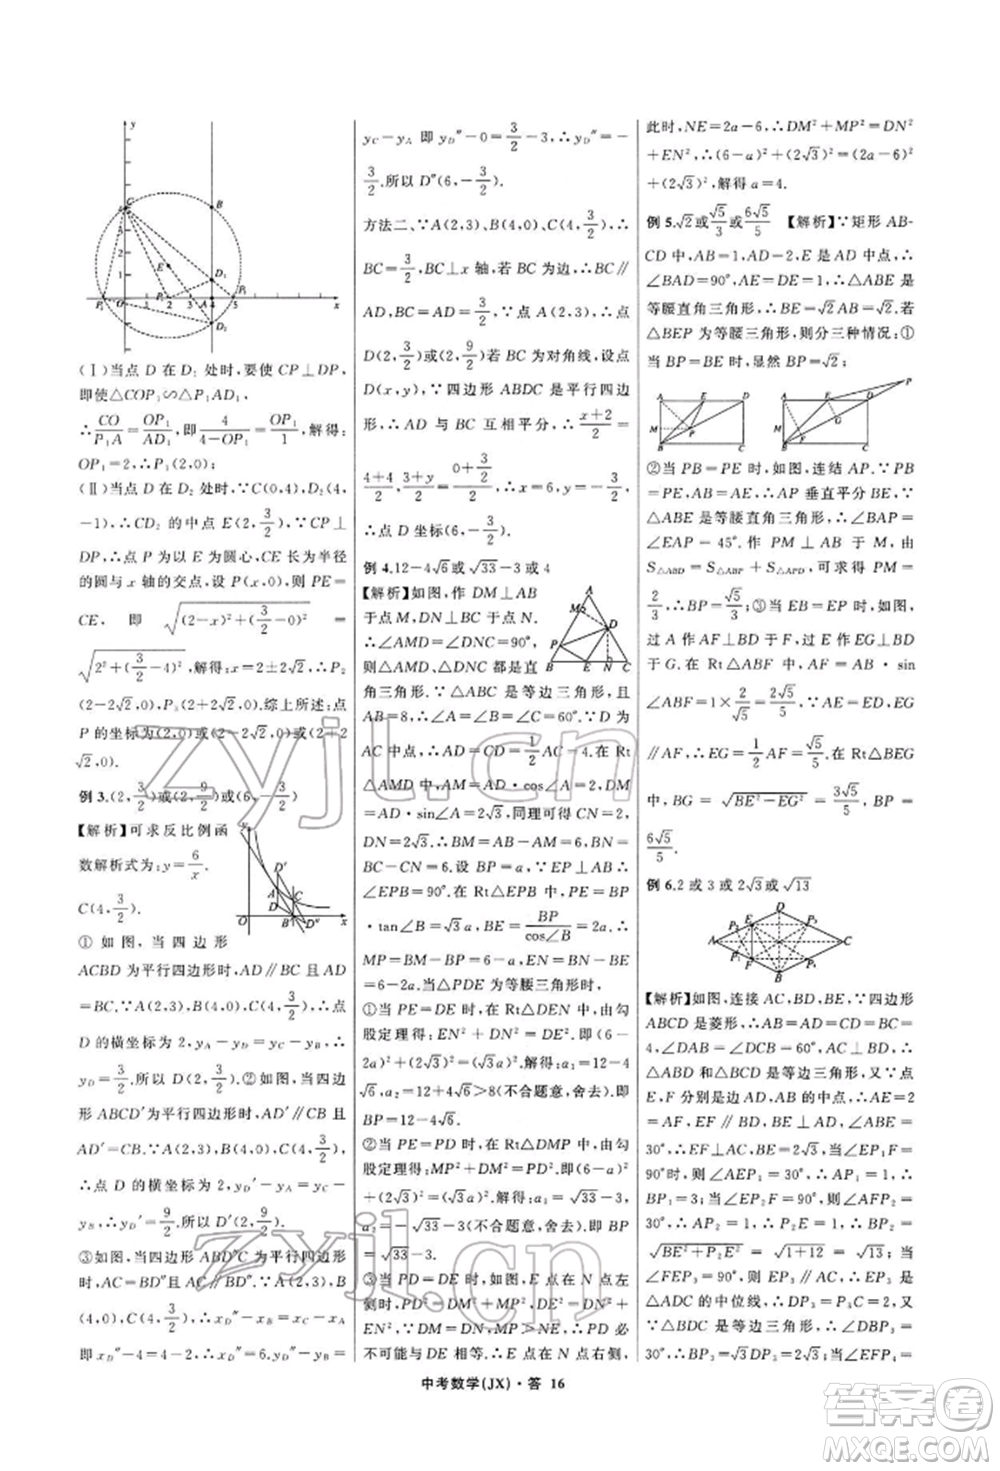 (Ⅰ)当点 D 在 D₁ 处时,要使 CP⊥DP,
即使△COP₁∽△P₁AD₁,
∴CO/P₁A=OP₁/AD₁,即4/(4-OP₁)=OP₁/1,解得:
OP₁=2,∴P₁(2,0);
(Ⅱ)当点 D 在 D₂ 处时,∵C(0,4),D₂(4,
-1),∴CD₂ 的中点 E(2,3/2),∵CP⊥
DP,∴点 P 为以 E 为圆心,CE 长为半径
的圆与 x 轴的交点,设 P(x,0),则 PE=
CE,即√((2-x)²+(3/2-0)²)=
√(2²+(3/2-4)²),解得:x=2±2√2,∴P₂
(2-2√2,0),P₃(2+2√2,0).综上所述:点
P 的坐标为(2,0)或(2-2√2,0)或(2+2
√2,0).
例 3.(2,3/2)或(2,9/2)或(6,-3/2)
【解析】可求反比例函
数解析式为:y=6/x.
C(4,3/2).
① 如图,当四边形
ACBD 为平行四边形时,AD∥BC 且 AD
=BC.∵A(2,3)、B(4,0)、C(4,3/2),∴点
D 的横坐标为 2,y_A-y_D=y_C-y_B,∴
y_D=3/2.所以 D(2,3/2).②如图,当四边
形 ABCD′为平行四边形时,AD′∥CB 且
AD′=CB.∵A(2,3)、B(4,0)、C(4,3/2),
∴点 D 的横坐标为 2,y_D′-y_A=y_C-
y_B,∴y_D′=9/2.所以 D′(2,9/2).
③如图,当四边形 ABD″C 为平行四边形
时,AC=BD″且 AC∥BD″.∵A(2,3)、B
(4,0)、C(4,3/2),∴x_D″-x_B=x_C-x_A
即 x_D″-4=4-2,故 x_D″=6.y_D″-y_B=
y_C-y_A 即 y_D″-0=3/2-3,∴y_D″=-
3/2.所以 D″(6,-3/2).
方法二、∵A(2,3)、B(4,0)、C(4,3/2),∴
BC=3/2,BC⊥x 轴,若 BC 为边,则 BC∥
AD,AD=BC=3/2,∵点 A(2,3),∴点
D(2,3/2)或(2,9/2);若 BC 为对角线,设点
D(x,y),∵四边形 ABDC 是平行四边
形,∴AD 与 BC 互相平分,∴(x+2)/2=
(4+4)/2,(3+y)/2=(0+3/2)/2,∴x=6,y=-3/2,
∴点 D 坐标(6,-3/2).
例 4.12-4√6或√33-3或 4
【解析】如图,作 DM⊥AB
于点 M,DN⊥BC 于点 N.
∴∠AMD=∠DNC=90°,
则△AMD、△DNC 都是直
角三角形.∵△ABC 是等边三角形,且
AB=8,∴∠A=∠B=∠C=60°.∵D 为
AC 中点,∴AD=CD=1/2AC=4.在 Rt
△AMD 中,AM=AD·cos∠A=2,DM=
AD·sin∠A=2√3,同理可得 CN=2,
DN=2√3.∴BM=AB-AM=6,BN=
BC-CN=6.设 BP=a,∵EP⊥AB,∴
∠EPB=90°.在 Rt△EPB 中,EP=BP
·tan∠B=√3a,BE=BP/cos∠B=2a.∴
MP=BM-BP=6-a,EN=BN-BE
=6-2a.当△PDE 为等腰三角形时,
①当 PE=DE 时,在 Rt△DEN 中,由勾
股定理得:EN²+DN²=DE²,即(6-
2a)²+(2√3)²=(√3a)².解得:a₁=12-4
√6,a₂=12+4√6>8(不合题意,舍去).即
BP=12-4√6.
②当 PE=PD 时,在 Rt△DMP 中,由勾
股定理得:MP²+DM²=PD²,即(6-a)²
+(2√3)²=(√3a)².解得:a₁=√33-3,
a₂=-√33-3(不合题意,舍去).即 BP
=√33-3.
③当 PD=DE 时,当 E 点在 N 点左
侧时,PD²=DM²+MP²=DE²=DN²+
EN²,∵DM=DN,MP>NE,∴PD 必
不可能与 DE 相等;∴E 点在 N 点右侧,
此时,NE=2a-6,∴DM²+MP²=DN²
+EN²,∴(6-a)²+(2√3)²=(2a-6)²
+(2√3)²,解得 a=4.
例 5.√2或√5/3或6√5/5 【解析】∵矩形 AB-
CD 中,AB=1,AD=2,E 是 AD 中点,∴
∠BAD=90°,AE=DE=1,∴△ABE 是
等腰直角三角形,∴BE=√2AB=√2.若
△BEP 为等腰三角形,则分三种情况:①
当 BP=BE 时,显然 BP=√2;
②当 PB=PE 时,如图,连结 AP.∵PB
=PE,AB=AE,∴AP 垂直平分 BE,∵
△ABE 是等腰直角三角形,∴∠BAP=
∠EAP=45°.作 PM⊥AB 于 M.由
S△ABD=S△ABP+S△APD,可求得 PM=
2/3,∴BP=√5/3;③当 EB=EP 时,如图,
过 A 作 AF⊥BP 于 F,过 E 作 EG⊥BP
于 G.在 Rt△ABF 中,AF=AB·sin
∠ABF=1×2/√5=2√5/5.∵AE=ED,EG
∥AF,∴EG=1/2AF=√5/5.在 Rt△BEG
中,BG=√(BE²-EG²)=3√5/5,∴BP=
6√5/5.
例 6.2 或 3 或 2√3或√13
【解析】如图,连接 AC,BD,BE,∵四边形
ABCD 是菱形,∴AB=AD=CD=BC=
4,∠DAB=∠DCB=60°,AC⊥BD,∴
△ABD 和△BCD 是等边三角形,∵点
E,F 分别是边 AD,AB 的中点,∴AE=2
=AF,EF∥BD,BE⊥AD,∠ABE=
30°,∴EF⊥AC,BE=2√3,当∠EP₁F=
30°时,则∠AEP₁=30°,∴∠AP₁E=
30°,∴AE=AP₁=2,当∠EP₂F=30°时,
且∠AFP₂=90°时,∴AP₂=1,∴BP₂
=√(BE²+P₂E²)=√(1+12)=√13,∵∠ABE=
30°,∴当点 P₃ 与点 B 重合,∵EP₃ 是
△ADC 的中位线,∴P₃ 是 CD 中点,∵
△BDC 是等边三角形,∴BP₃⊥DC,∠DBP₃=
30°,∴DP₃=2,BP₃=√3DP₃=2√3,当点
中考数学(JX)·答 16
zyjl.cn
zyjl.cn
答案圈
MXQE.COM